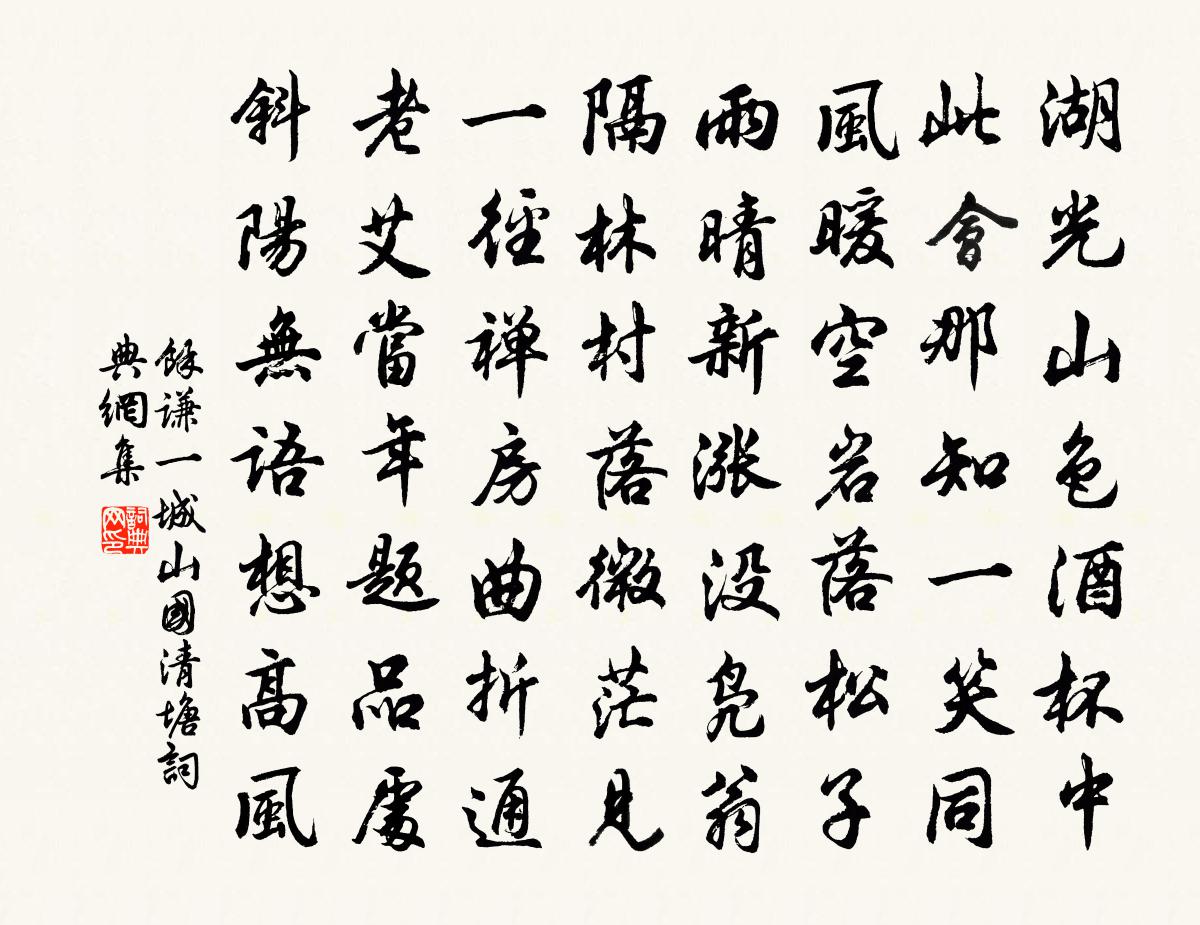 湖光山色酒杯中
此會那知一笑同
風暖空岩落松子
雨晴新漲没凫翁
隔林村落微茫見
一徑禅房曲折通
老艾當年题品處
斜陽無語想高風
餘謙一城山國清塘詞
典網集
詞典
网印